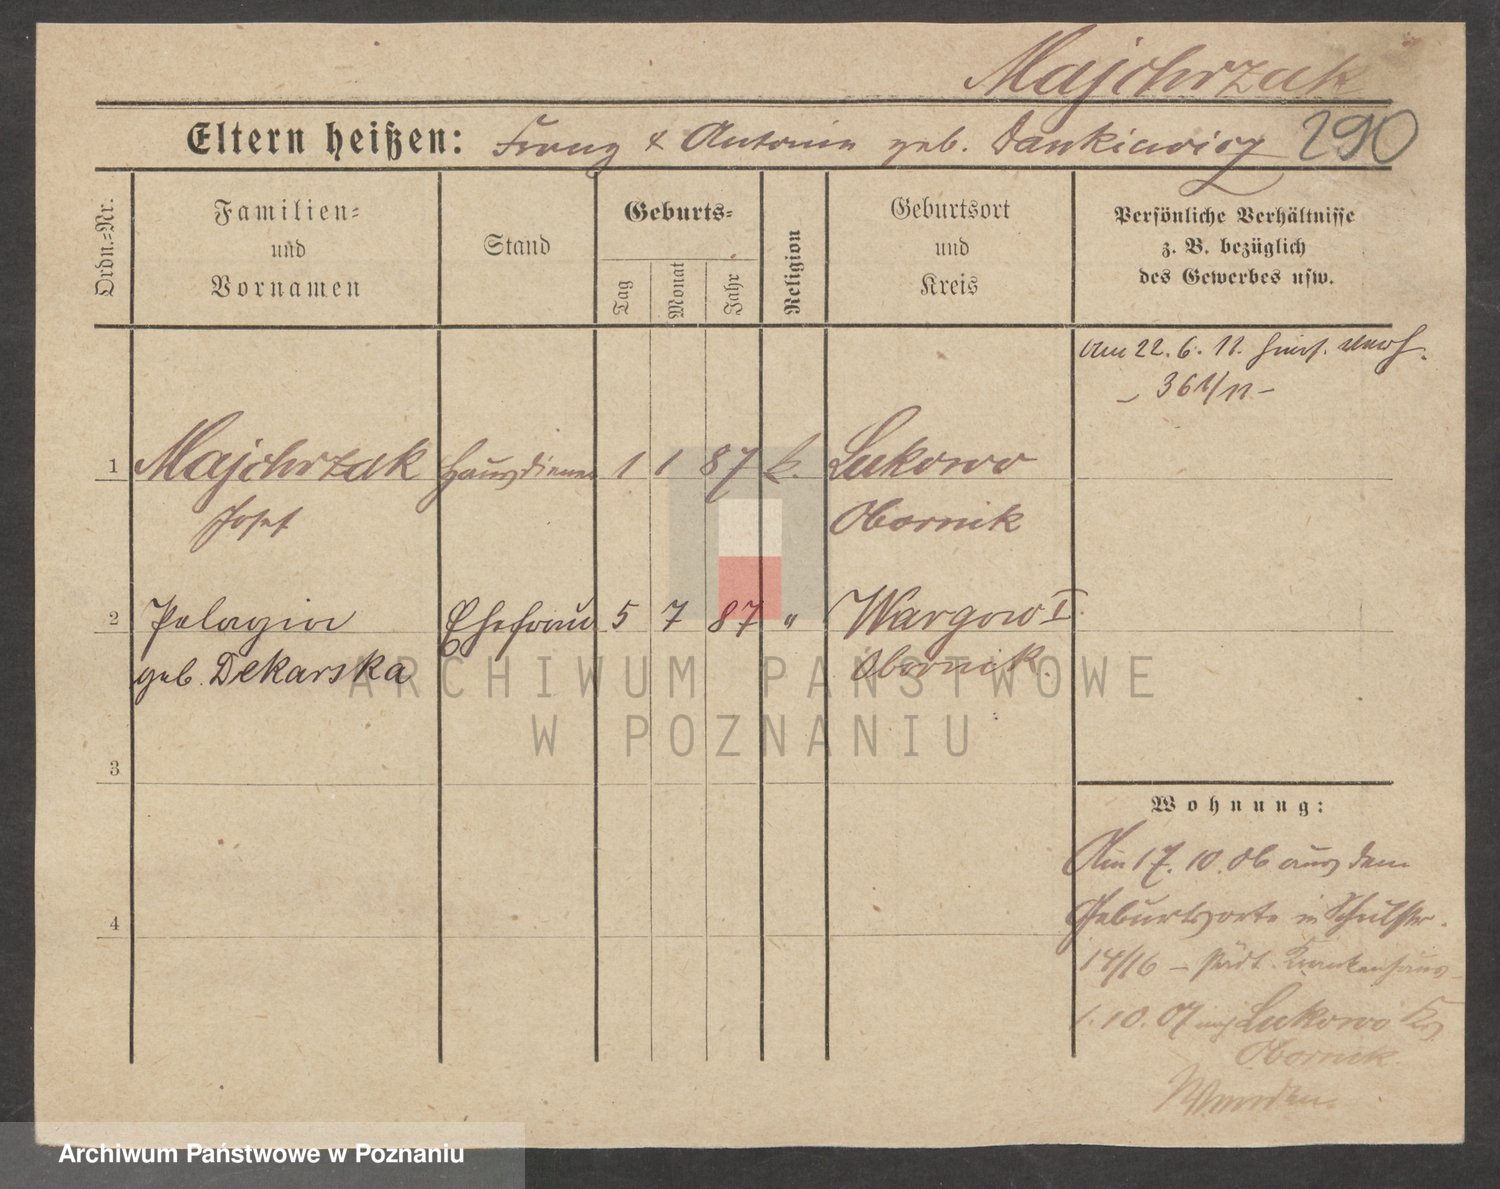 Majchrzak
Eltern heißen: Franz & Antonie geb. Dankiewicz 290
Ordn.=Nr.
Familien=
und
Vornamen
Stand
Geburts=
Tag
Monat
Jahr
Religion
Geburtsort
und
Kreis
Persönliche Verhältnisse
z. B. bezüglich
des Gewerbes usw.
Am 22. 6. 11.
1 Majchrzak Hausdiener 1 1 87 k. Lukowo
Josef Obornik
2 Pelagia Ehefrau 5 7 87 " Wargowo I.
geb. Dekarska Obornik.
ARCHIWUM PAŃSTWOWE
W POZNANIU
3
Wohnung:
Am 17. 10. 06 aus dem
Geburtsorte in Schulstr.
4
14/16 – städt. Krankenhaus
1. 10. 07 nach Lukowo Krs
Obornik
Archiwum Państwowe w Poznaniu